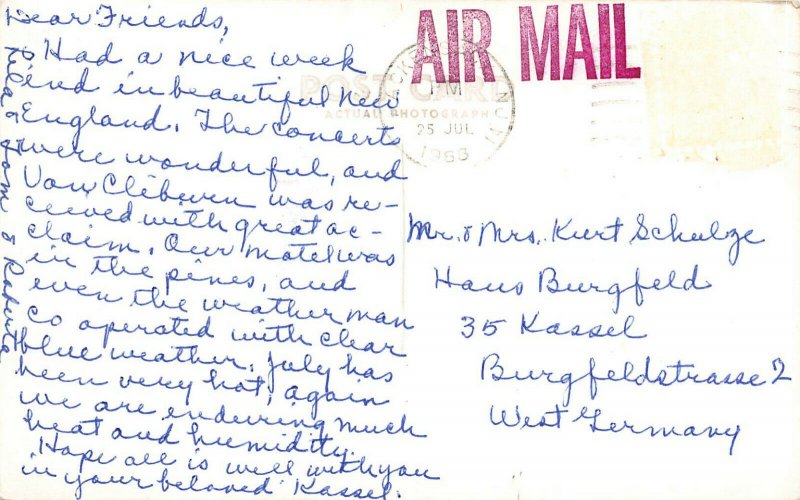 Dear Friends,
Had a nice week
end in beautiful New
England. The concerts
were wonderful, and
Van Cliburn was re-
ceived with great ac-
claim. Our motel was
in the pines, and
even the weather man
co operated with clear
blue weather. July has
been very hot, again
we are enduring much
heat and humidity.
Hope all is well with you
in your beloved Kassel.
& Sam & Roberta
AIR MAIL
POST CARD
ACTUAL PHOTOGRAPH
PM
25 JUL
1966
Mr. & Mrs. Kurt Schulze
Haus Burgfeld
35 Kassel
Burgfeldstrasse 2
West Germany